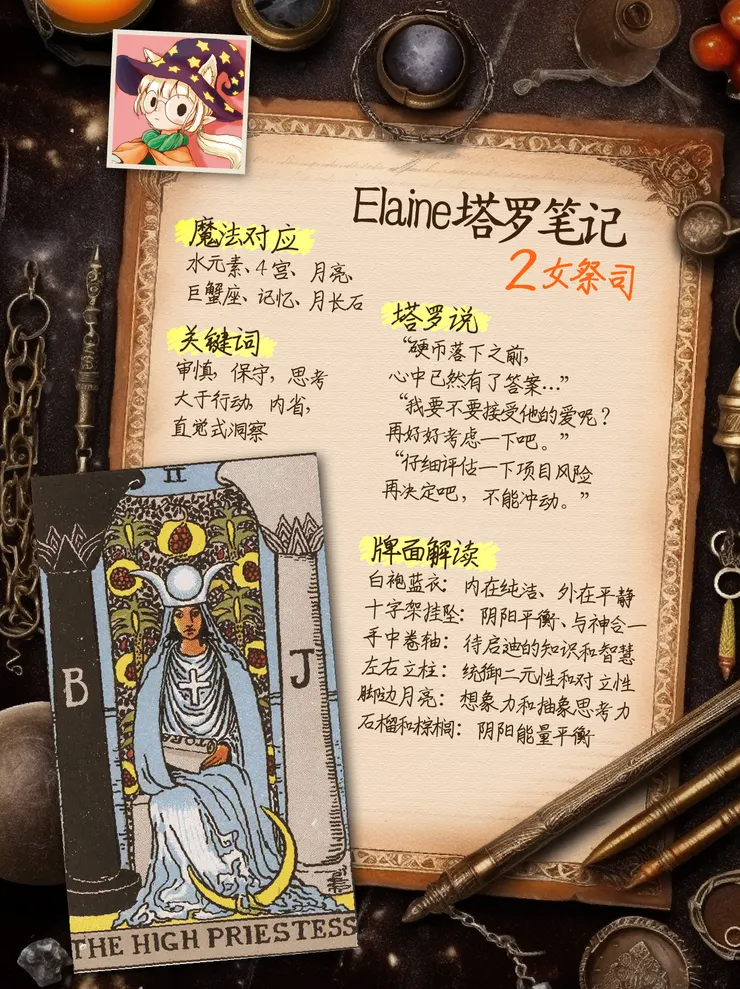 Elaine塔罗笔记
2女祭司
魔法对应
水元素、4宫、月亮、
巨蟹座、记忆、月长石
关键词
审慎, 保守, 思考
大于行动, 内省,
直觉式洞察
塔罗说
“硬币落下之前,
心中已然有了答案...”
“我要不要接受他的爱呢?
再好好考虑一下吧。”
“仔细评估一下项目风险
再决定吧, 不能冲动。”
牌面解读
白袍蓝衣: 内在纯洁、外在平静
十字架挂坠: 阴阳平衡、与神合一
手中卷轴: 待启迪的知识和智慧
左右立柱: 统御二元性和对立性
脚边月亮: 想象力和抽象思考力
石榴和棕榈: 阴阳能量平衡
II
B
J
THE HIGH PRIESTESS